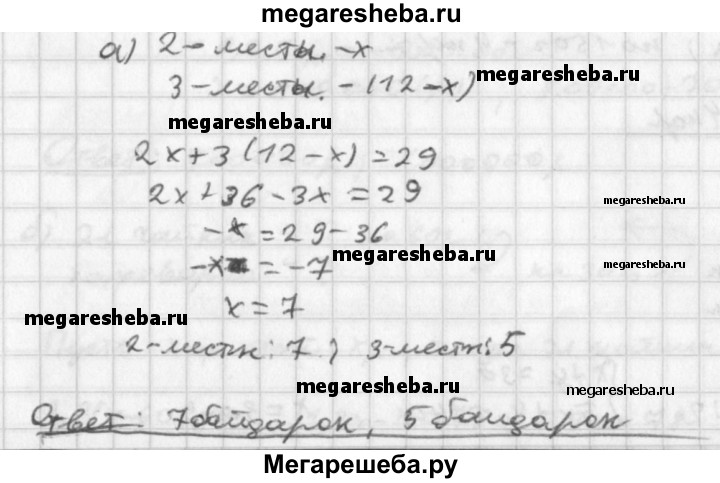 megaresheba.ru
а) 2-местн. - x
3-местн. - (12-x) megaresheba.ru
megaresheba.ru
2x+3(12-x)=29
2x+36-3x=29 megaresheba.ru
-x=29-36 megaresheba.ru
-x=-7 megaresheba.ru
x=7
megaresheba.ru
2-местн: 7; 3-местн: 5
megaresheba.ru megaresheba.ru
Ответ: 7 байдарок, 5 байдарок
Мегарешеба.ру